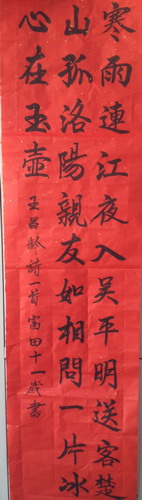 寒雨連江夜入吴平明送客楚
山孤洛陽親友如相問一片冰
心在玉壺
王昌齡詩一首富田十一歲書